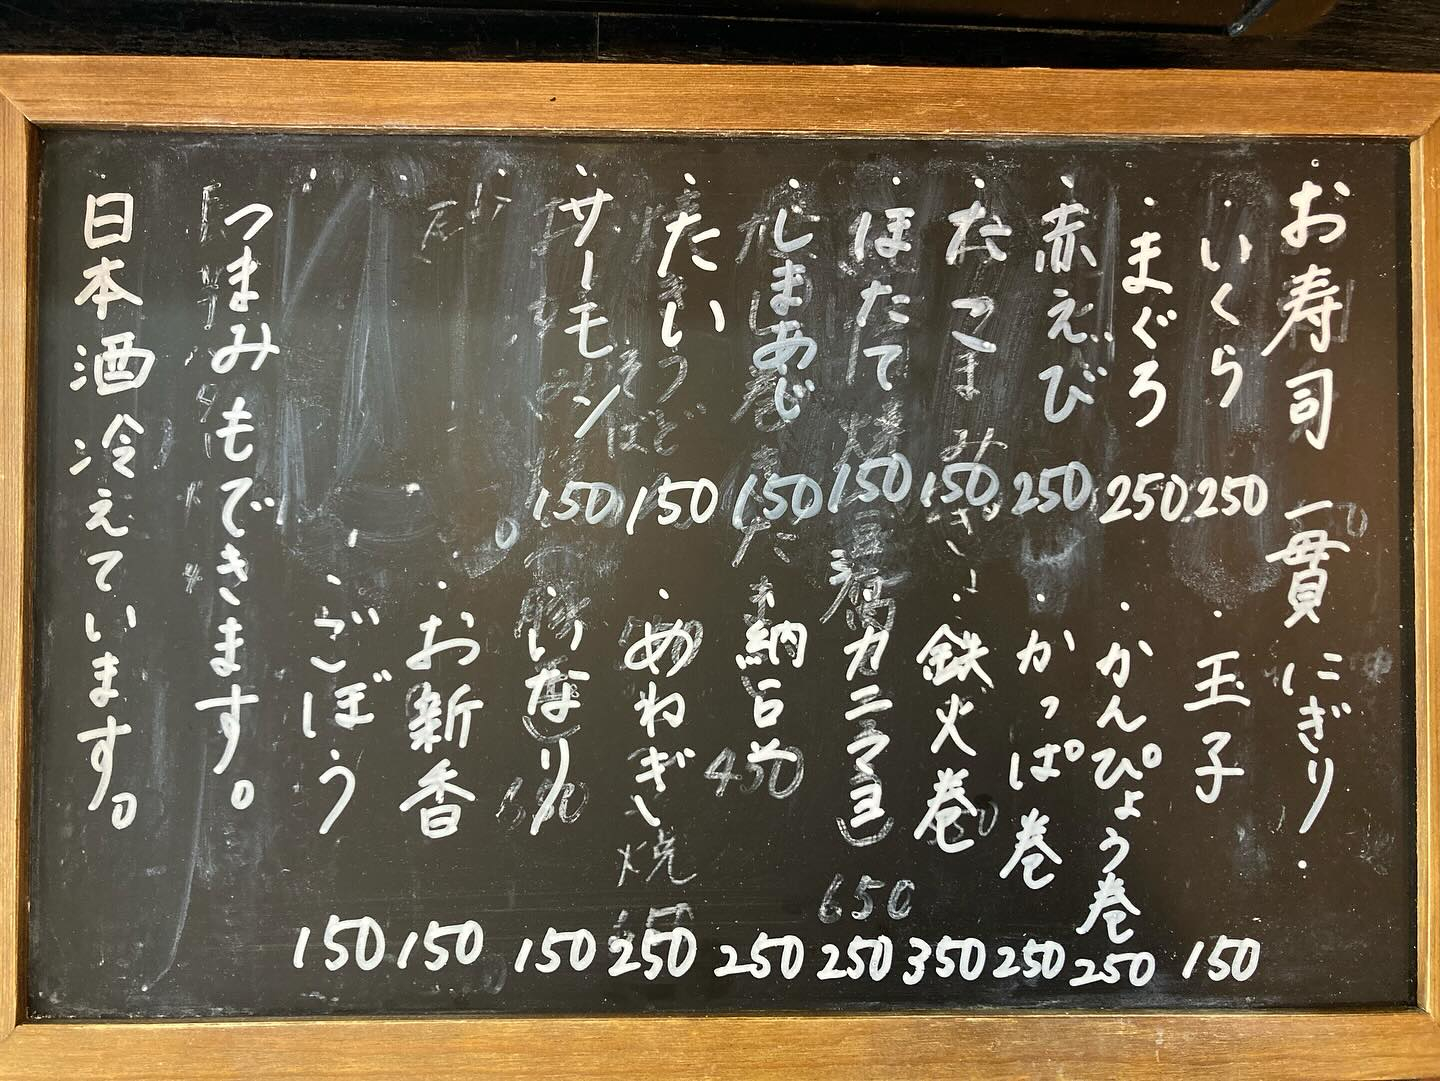 お寿司 一貫 にぎり
いくら 250
まぐろ 250
赤えび 250
たこ 150
ほたて 150
しまあじ 150
たい 150
サーモン 150
玉子 150
かんぴょう巻 250
かっぱ巻 250
鉄火巻 350
カニマヨ 250
納豆 250
めねぎ 250
いなり 150
お新香 150
ごぼう 150
つまみもできます。
日本酒冷えています。